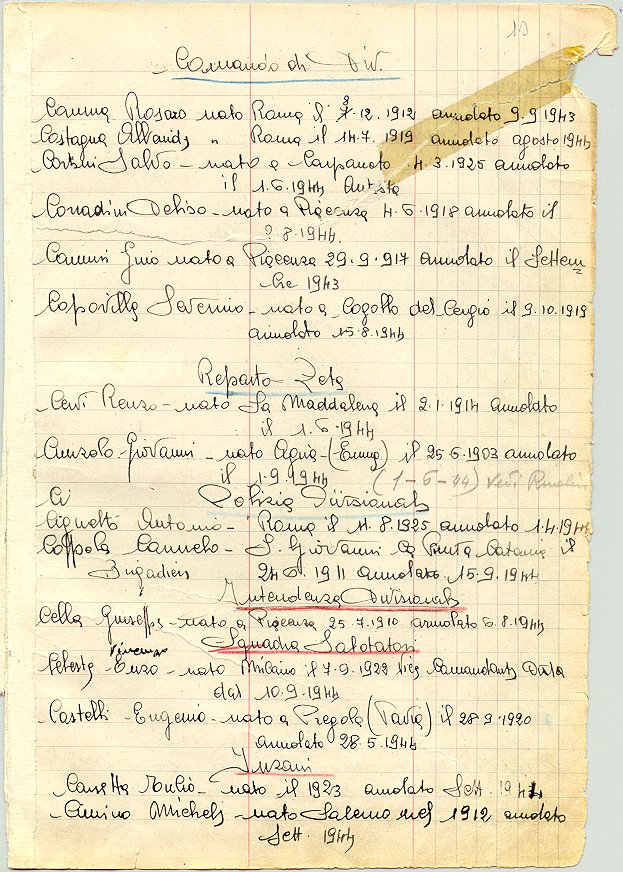 10
Comando di Div.
Canma Rosaro nato Roma il 3.12.1912 annolato 9.9.1943
Castagna " Roma il 14.7.1919 annolato agosto 1944
Salvo - nato a Carpaneto 4.3.1925 annolato
il 1.6.1944 Autista
Corradini Deliso - nato a Piacenza 4.6.1918 annolato il
?.8.1944.
Gino nato a Piacenza 29.9.917 annolato il Settem
bre 1943
Capovilla Severino - nato a Cogollo del Cengio il 9.10.1919
annolato 15.8.1944
Reparto Zeta
Renzo - nato La Maddalena il 2.1.1914 annolato
il 1.6.1944
Giovanni - nato Agira - (Enna) il 25.6.1903 annolato
il 1.9.1944 (1-6-44) vedi
Ci Polizia Divisionale
Antonio - Roma il 11.8.1925 annolato 1.4.1944
Coppola Carmelo - S. Giovanni La Punta Catania il
Brigadiere 24.6.1911 annolato 15.9.1944
Intendenza Divisionale
Cella Giuseppe - nato a Piacenza 25.7.1910 annolato 6.8.1944
Squadra Sabotatori
Vincenzo
Celeste Enzo - nato Milano il 7.9.1922 Vice Comandante
dal 10.9.1944
Castelli Eugenio - nato a Pregola (Pavia) il 28.9.1920
annolato 28.5.1944
Inzani
Tulio - nato il 1923 annolato Sett. 1944
Amino Michele - nato Salerno nel 1912 annolato
Sett. 1944